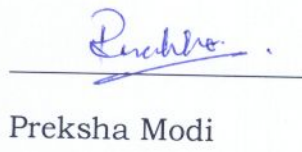 Preksha
Preksha Modi